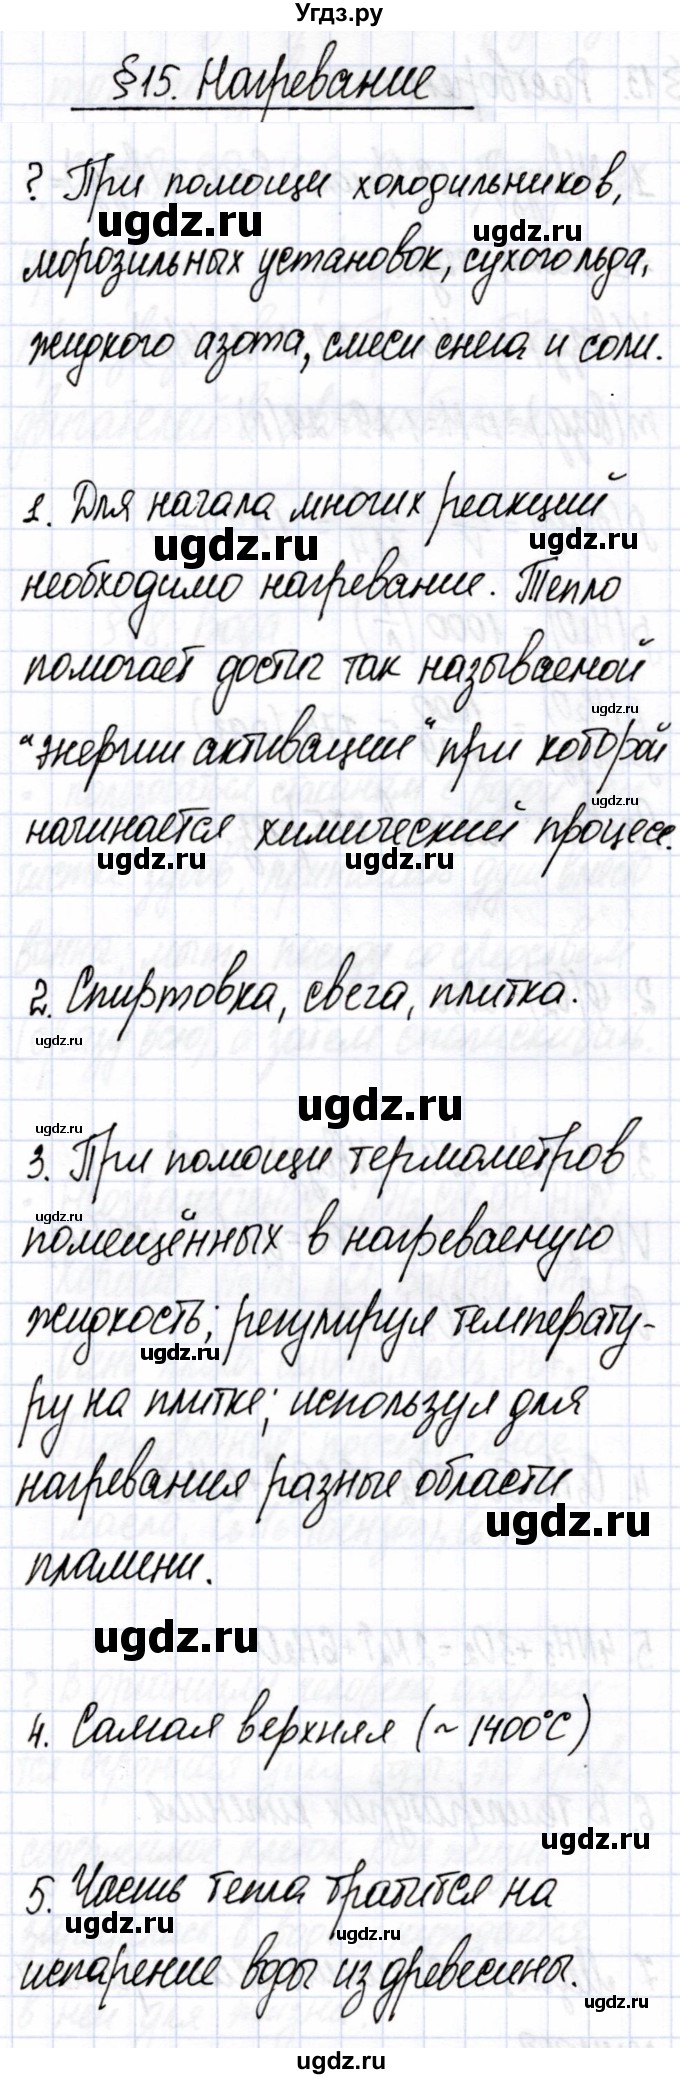 Угдз.ру
§15. Нагревание
? При помощи холодильников,
ugdz.ru
ugdz.ru
морозильных установок, сухого льда,
жидкого азота, смеси снега и соли.
1. Для начала многих реакций
ugdz.ru
ugdz.ru
необходимо нагревание. Тепло
помогает достиг так называемой
ugdz.ru
"энергии активации" при которой
ugdz.ru
начинается химический процесс.
ugdz.ru
ugdz.ru
2. Спиртовка, свеча, плитка.
ugdz.ru
ugdz.ru
ugdz.ru
3. При помощи термометров
ugdz.ru
помещённых в нагреваемую
жидкость; регулируя температу-
ugdz.ru
ру на плитке; используя для
нагревания разные области
ugdz.ru
пламени.
ugdz.ru
4. Самая верхняя (~1400°С)
ugdz.ru
5. Часть тепла тратится на
ugdz.ru
ugdz.ru
испарение воды из древесины.
ugdz.ru
ugdz.ru